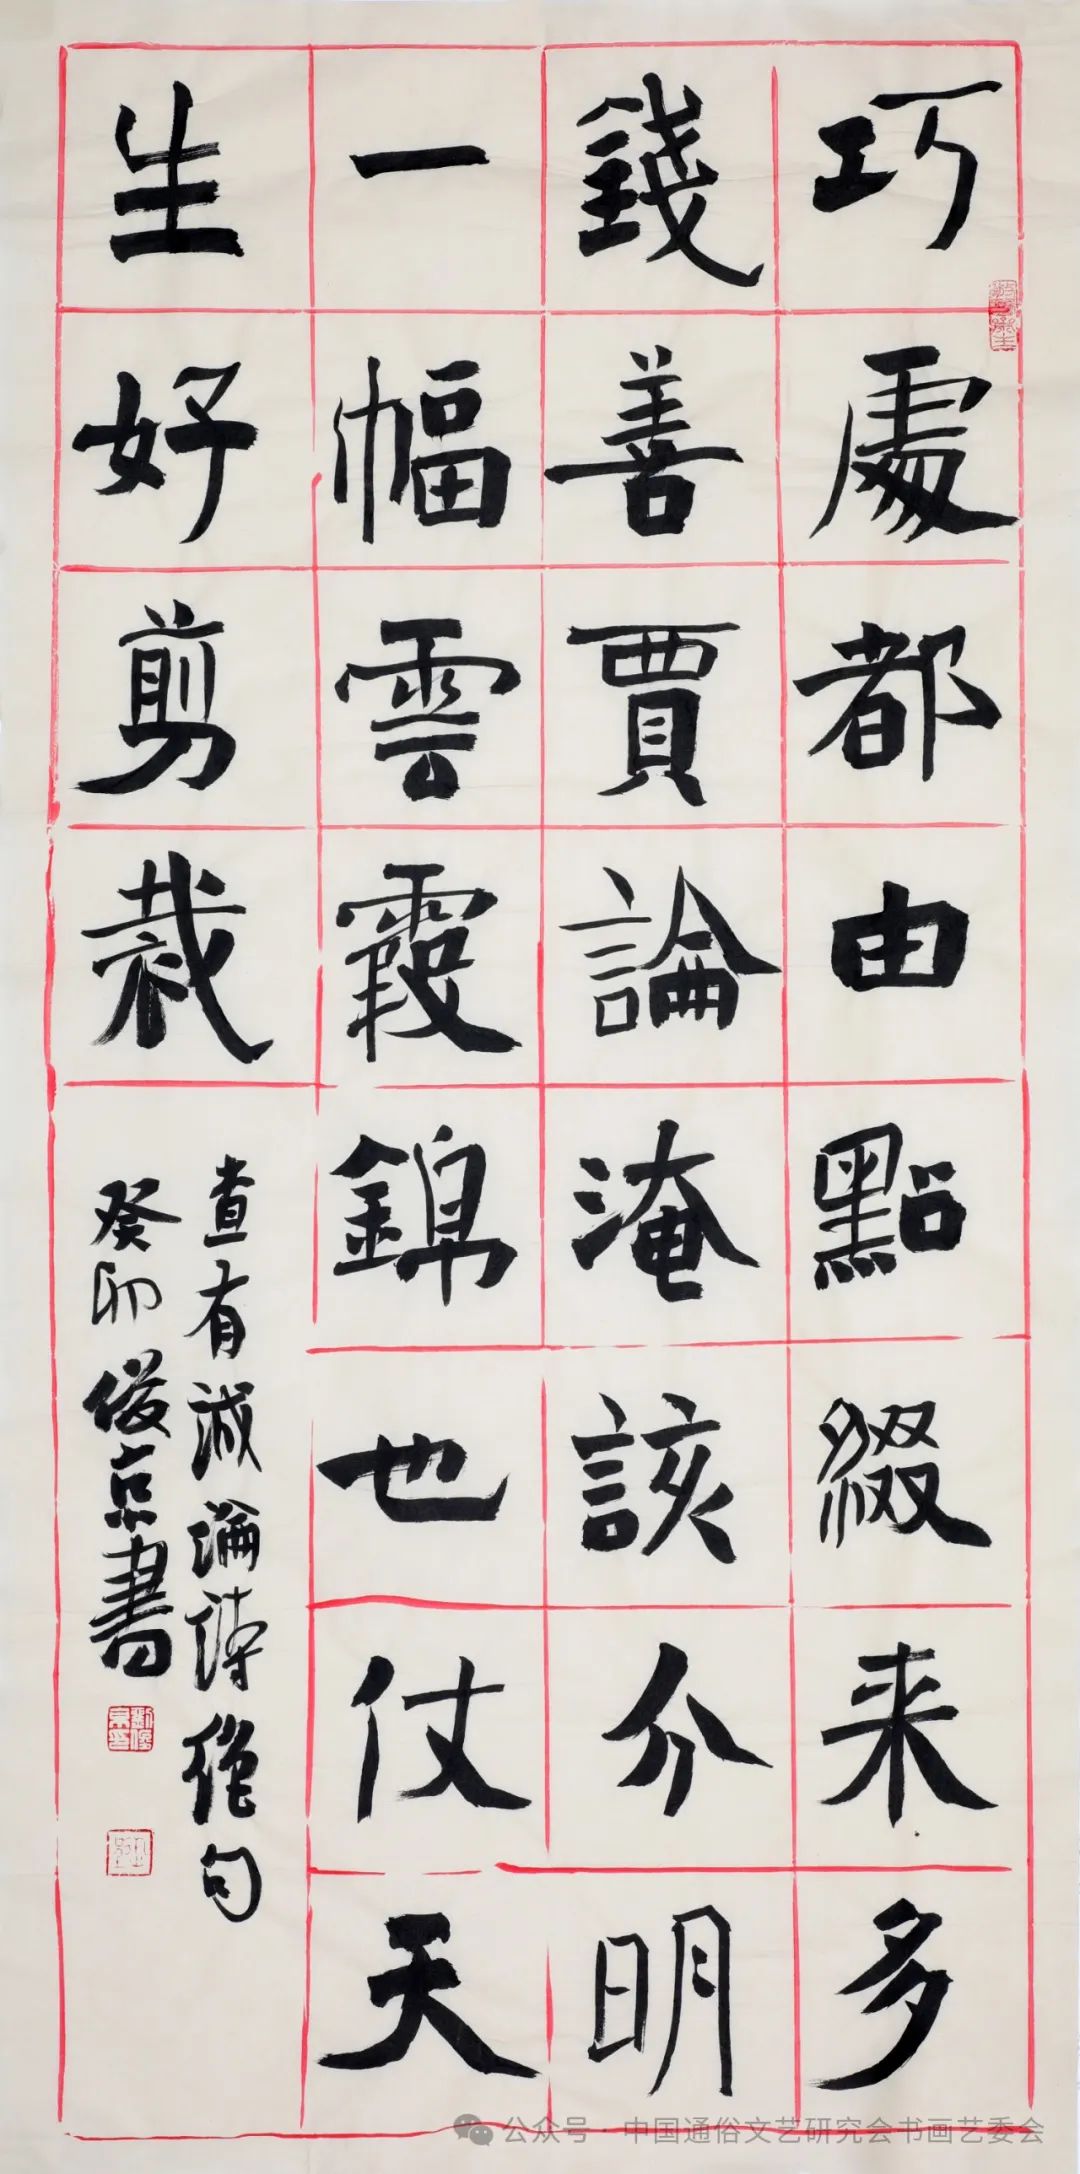 巧處都由點綴来多
錢善賈論淹該分明
一幅雲霞錦也仗天
生好剪裁
查有誠論詩絕句
癸卯俊京書
公众号·中国通俗文艺研究会书画艺委会